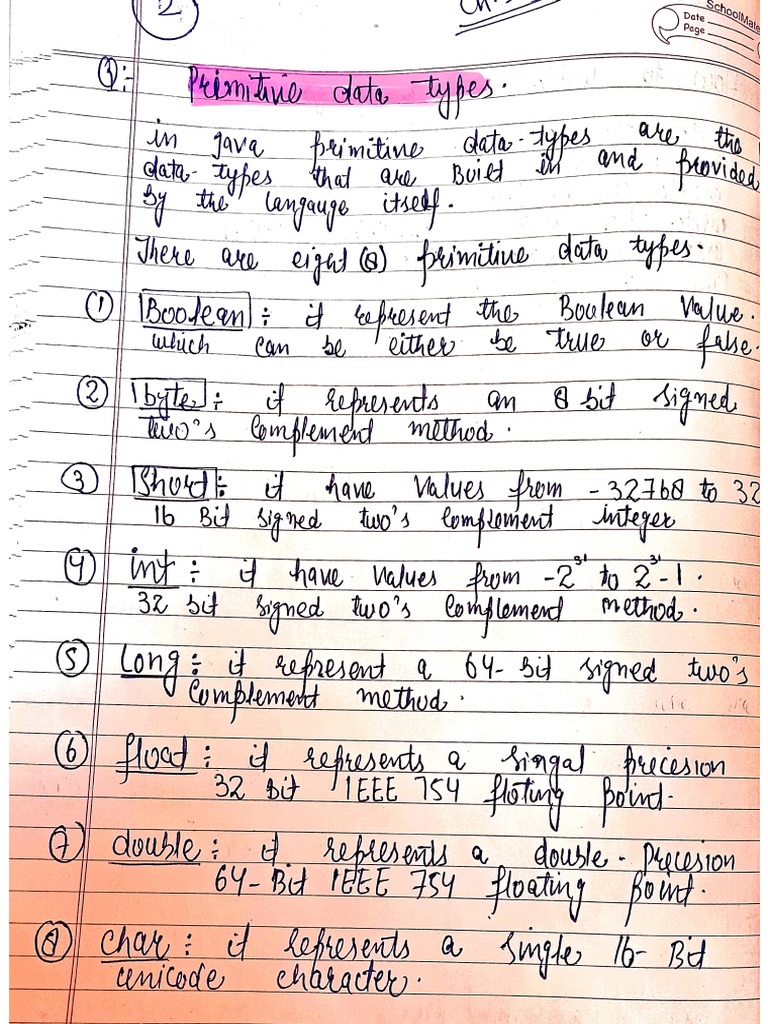 2
Ch.
SchoolMate
Date
Page
③:- Primitive data types.
in java primitive data-types are the
data-types that are Built in and provided
by the langauge itself.
There are eight (8) primitive data types.
① Boolean :- it represent the Boolean Value.
which can be either be true or false.
② byte :- it represents an 8 bit signed
two's complement method.
③ Short :- it have values from -32768 to 32
16 Bit signed two's complement integer
④ int :- it have values from -2³¹ to 2³¹-1.
32 bit signed two's complement method.
⑤ Long :- it represent a 64-Bit signed two's
complement method.
⑥ float :- it represents a singal precesion
32 bit IEEE 754 floting point.
⑦ double :- it represents a double-precesion
64-Bit IEEE 754 floating point.
⑧ char :- it represents a single 16-Bit
unicode character.